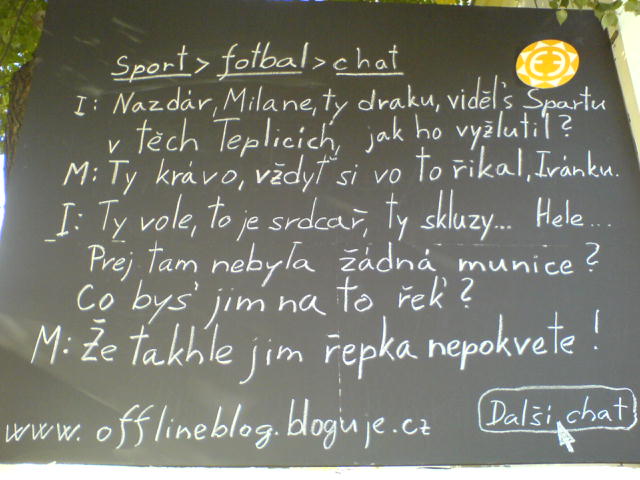 Sport > fotbal > chat
I: Nazdár, Milane, ty draku, viděls Spartu
v těch Teplicích, jak ho vyžlutil?
M: Ty krávo, vždyť si vo to řikal, Ivánku.
I: Ty vole, to je srdcař, ty skluzy... Hele...
Prej tam nebyla žádná munice?
Co bys' jim na to řek'?
M: Že takhle jim řepka nepokvete!
www.offlineblog.bloguje.cz
Další chat